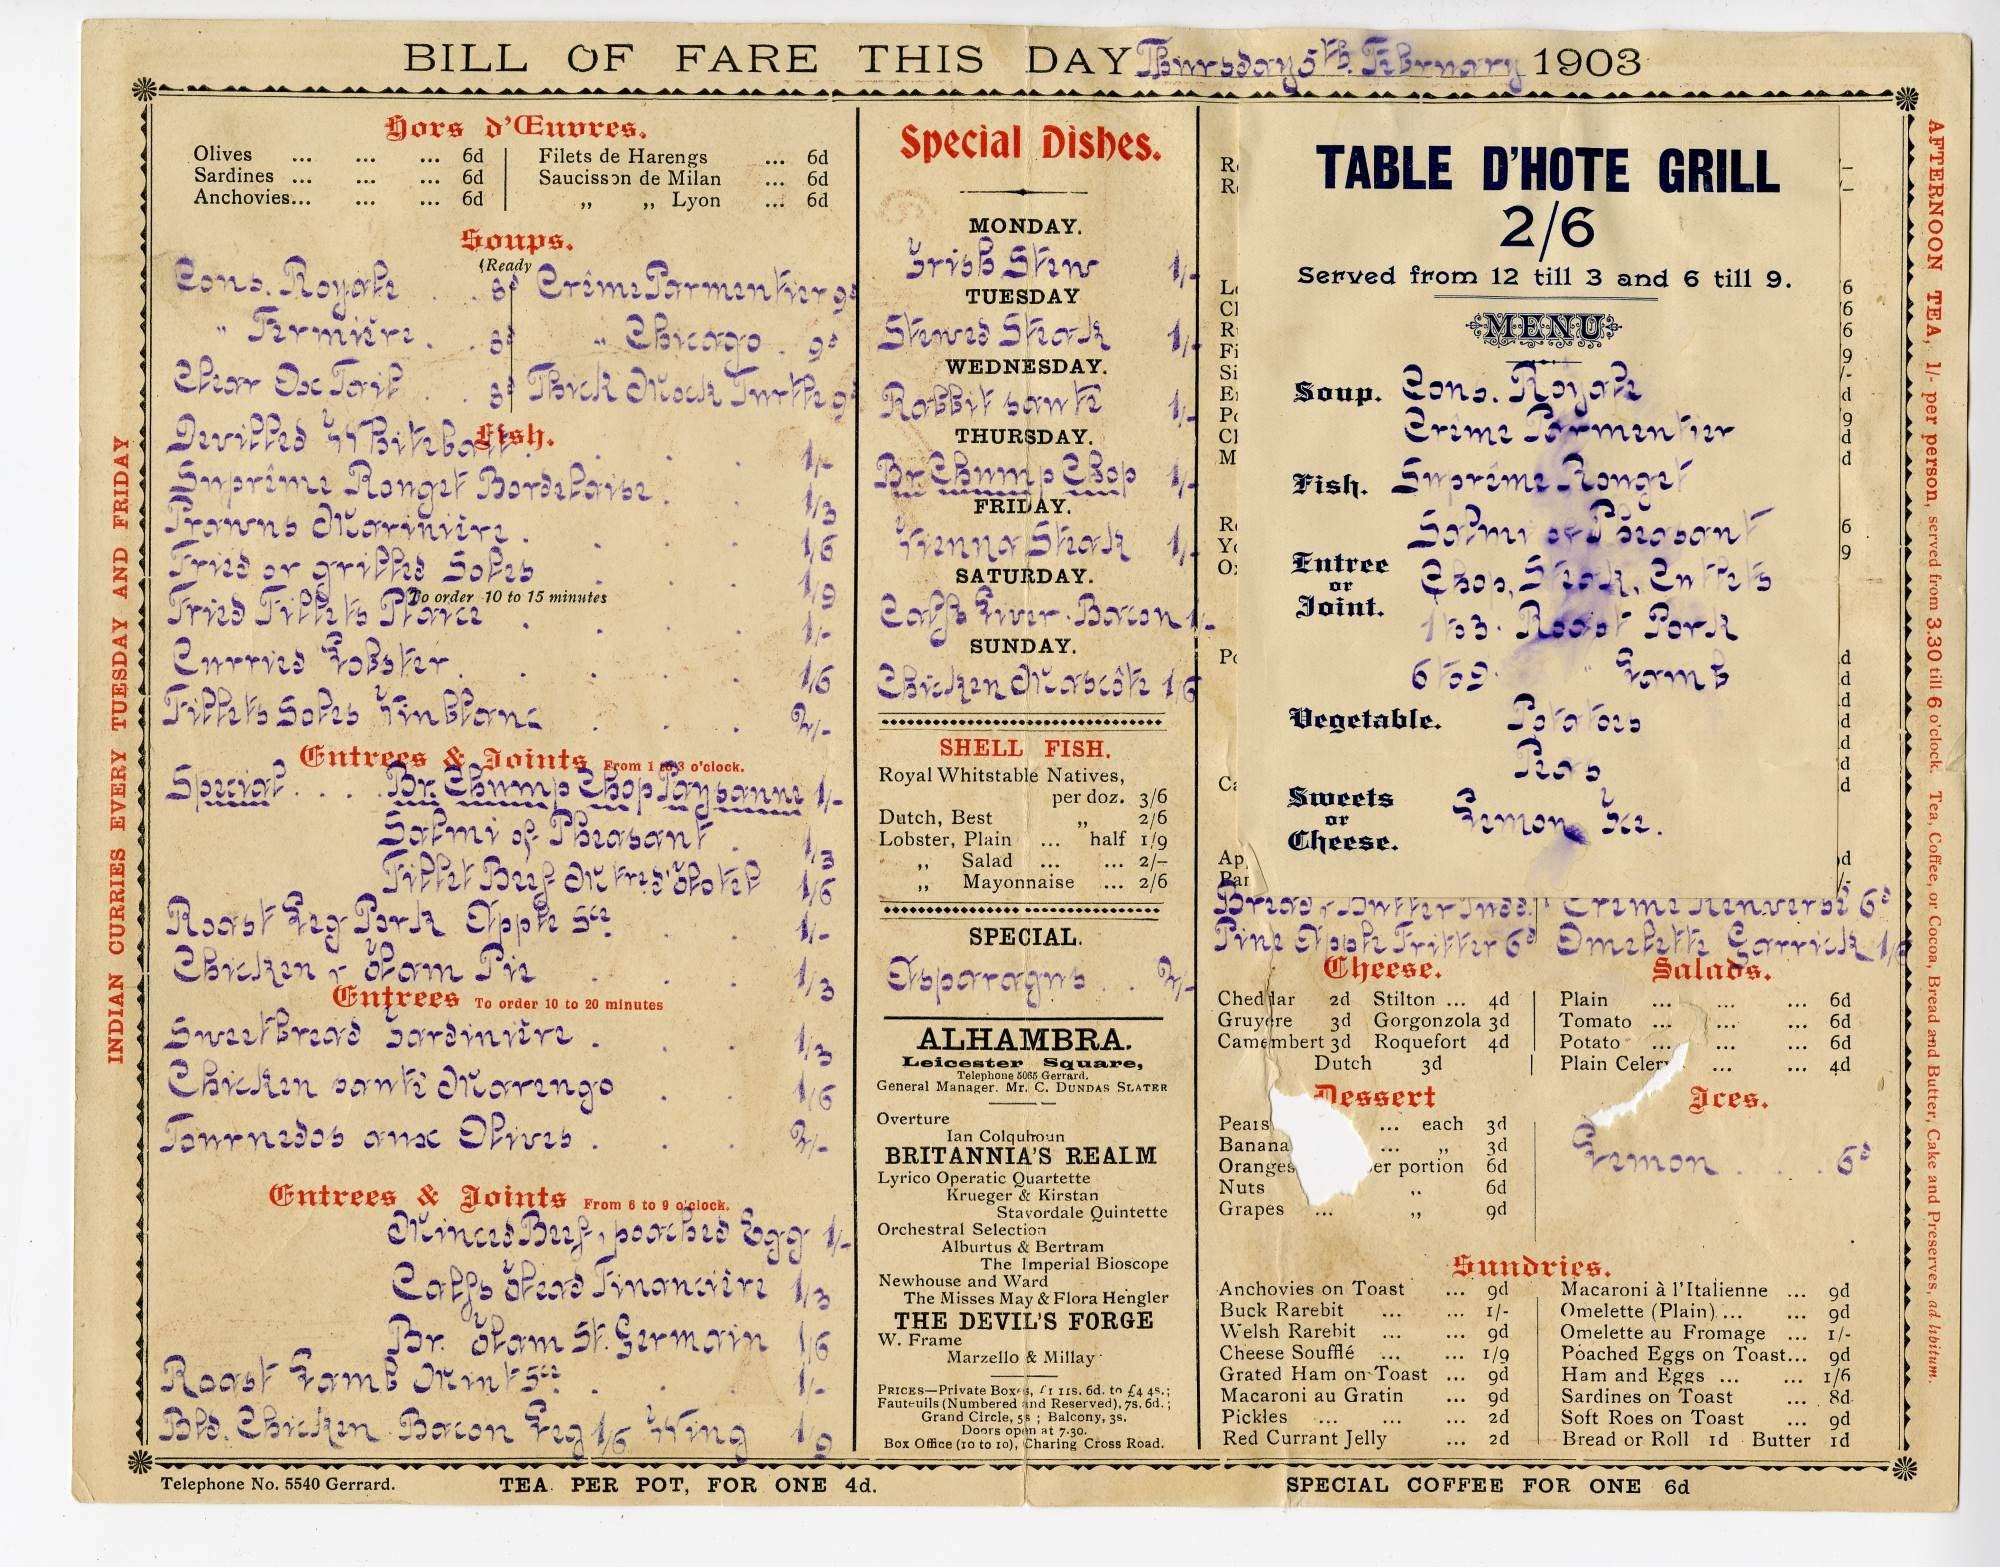 BILL OF FARE THIS DAY Thursday 5th. February 1903
INDIAN CURRIES EVERY TUESDAY AND FRIDAY
Hors d'Œuvres.
Olives ... ... ... 6d
Sardines ... ... ... 6d
Anchovies... ... ... 6d
Filets de Harengs ... 6d
Saucisson de Milan ... 6d
„ „ Lyon ... 6d
Soups.
(Ready
Cons. Royale . . 8d
" Fermière . . 8d
Clear Ox Tail . . 8d
Crême Parmentier 9d
" Chicago . 9d
Thick Mock Turtle 9d
Fish.
Devilled Whitebait . . . 1/-
Suprême Rouget Bordelaise . . 1/3
Prawns Marinière . . . . 1/6
Fried or grilled Soles . . . 1/9
To order 10 to 15 minutes
Fried Fillets Plaice . . . 1/-
Curried Lobster . . . . 1/6
Fillets Soles Vin Blanc . . . 2/-
Entrees & Joints From 1 to 3 o'clock.
Special . . . Br. Chump Chop Paysanne 1/-
Salmi of Pheasant . 1/3
Fillet Beef Mtre d'Hotel 1/6
Roast Leg Pork Apple Sce . . 1/-
Chicken & Ham Pie . . . 1/3
Entrees To order 10 to 20 minutes
Sweetbread Jardinière . . . 1/3
Chicken sauté Marengo . . 1/6
Tournedos aux Olives . . . 2/-
Entrees & Joints From 6 to 9 o'clock.
Minced Beef, poached Egg 1/-
Calfs Head Financière 1/3
Br. Ham St. Germain 1/6
Roast Lamb Mint Sce . . . 1/-
Bld. Chicken Bacon Leg 1/6 Wing 1/9
Special Dishes.
MONDAY.
Irish Stew 1/-
TUESDAY
Stewed Steak 1/-
WEDNESDAY.
Rabbit sauté 1/-
THURSDAY.
Br. Chump Chop 1/-
FRIDAY.
Vienna Steak 1/-
SATURDAY.
Calfs Liver . Bacon 1/-
SUNDAY.
Chicken Mascôte 1/6
SHELL FISH.
Royal Whitstable Natives,
per doz. 3/6
Dutch, Best „ 2/6
Lobster, Plain ... half 1/9
„ Salad ... ... 2/–
„ Mayonnaise ... 2/6
SPECIAL.
Asparagus . . 2/-
ALHAMBRA.
Leicester Square,
Telephone 5065 Gerrard.
General Manager. Mr. C. DUNDAS SLATER
Overture
Ian Colquhoun
BRITANNIA'S REALM
Lyrico Operatic Quartette
Krueger & Kirstan
Stavordale Quintette
Orchestral Selection
Alburtus & Bertram
The Imperial Bioscope
Newhouse and Ward
The Misses May & Flora Hengler
THE DEVIL'S FORGE
W. Frame
Marzello & Millay
PRICES—Private Boxes, £1 11s. 6d. to £4 4s.;
Fauteuils (Numbered and Reserved), 7s. 6d.;
Grand Circle, 5s ; Balcony, 3s.
Doors open at 7.30.
Box Office (10 to 10), Charing Cross Road.
TABLE D'HOTE GRILL
2/6
Served from 12 till 3 and 6 till 9.
MENU
Soup. Cons. Royale
Crême Parmentier
Fish. Suprême Rouget
Entree or Joint.
Salmi of Pheasant
Chop, Steak, Cutlets
1 to 3. Roast Pork
6 to 9. " Lamb
Vegetable. Potatoes
Peas
Sweets or Cheese.
Lemon Ice.
Bread & Butter Pudd. Crême Renversé 6d
Pine Apple Fritter 6d Omelette Garrick
Cheese.
Cheddar 2d Stilton ... 4d
Gruyere 3d Gorgonzola 3d
Camembert 3d Roquefort 4d
Dutch 3d
Salads.
Plain ... ... ... 6d
Tomato ... ... ... 6d
Potato ... ... 6d
Plain Celery ... ... 4d
Dessert
Pears ... each 3d
Banana ... „ 3d
Oranges per portion 6d
Nuts „ 6d
Grapes ... „ 9d
Ices.
Lemon . . . . 6d
Sundries.
Anchovies on Toast ... 9d
Buck Rarebit ... ... 1/-
Welsh Rarebit ... ... 9d
Cheese Soufflé ... ... 1/9
Grated Ham on Toast ... 9d
Macaroni au Gratin ... 9d
Pickles ... ... ... 2d
Red Currant Jelly ... 2d
Macaroni à l'Italienne ... 9d
Omelette (Plain) ... ... 9d
Omelette au Fromage ... 1/-
Poached Eggs on Toast... 9d
Ham and Eggs ... ... 1/6
Sardines on Toast ... 8d
Soft Roes on Toast ... 9d
Bread or Roll 1d Butter 1d
AFTERNOON TEA, 1/- per person, served from 3.30 till 6 o'clock. Tea, Coffee, or Cocoa, Bread and Butter, Cake and Preserves, ad libitum.
Telephone No. 5540 Gerrard.
TEA PER POT, FOR ONE 4d.
SPECIAL COFFEE FOR ONE 6d